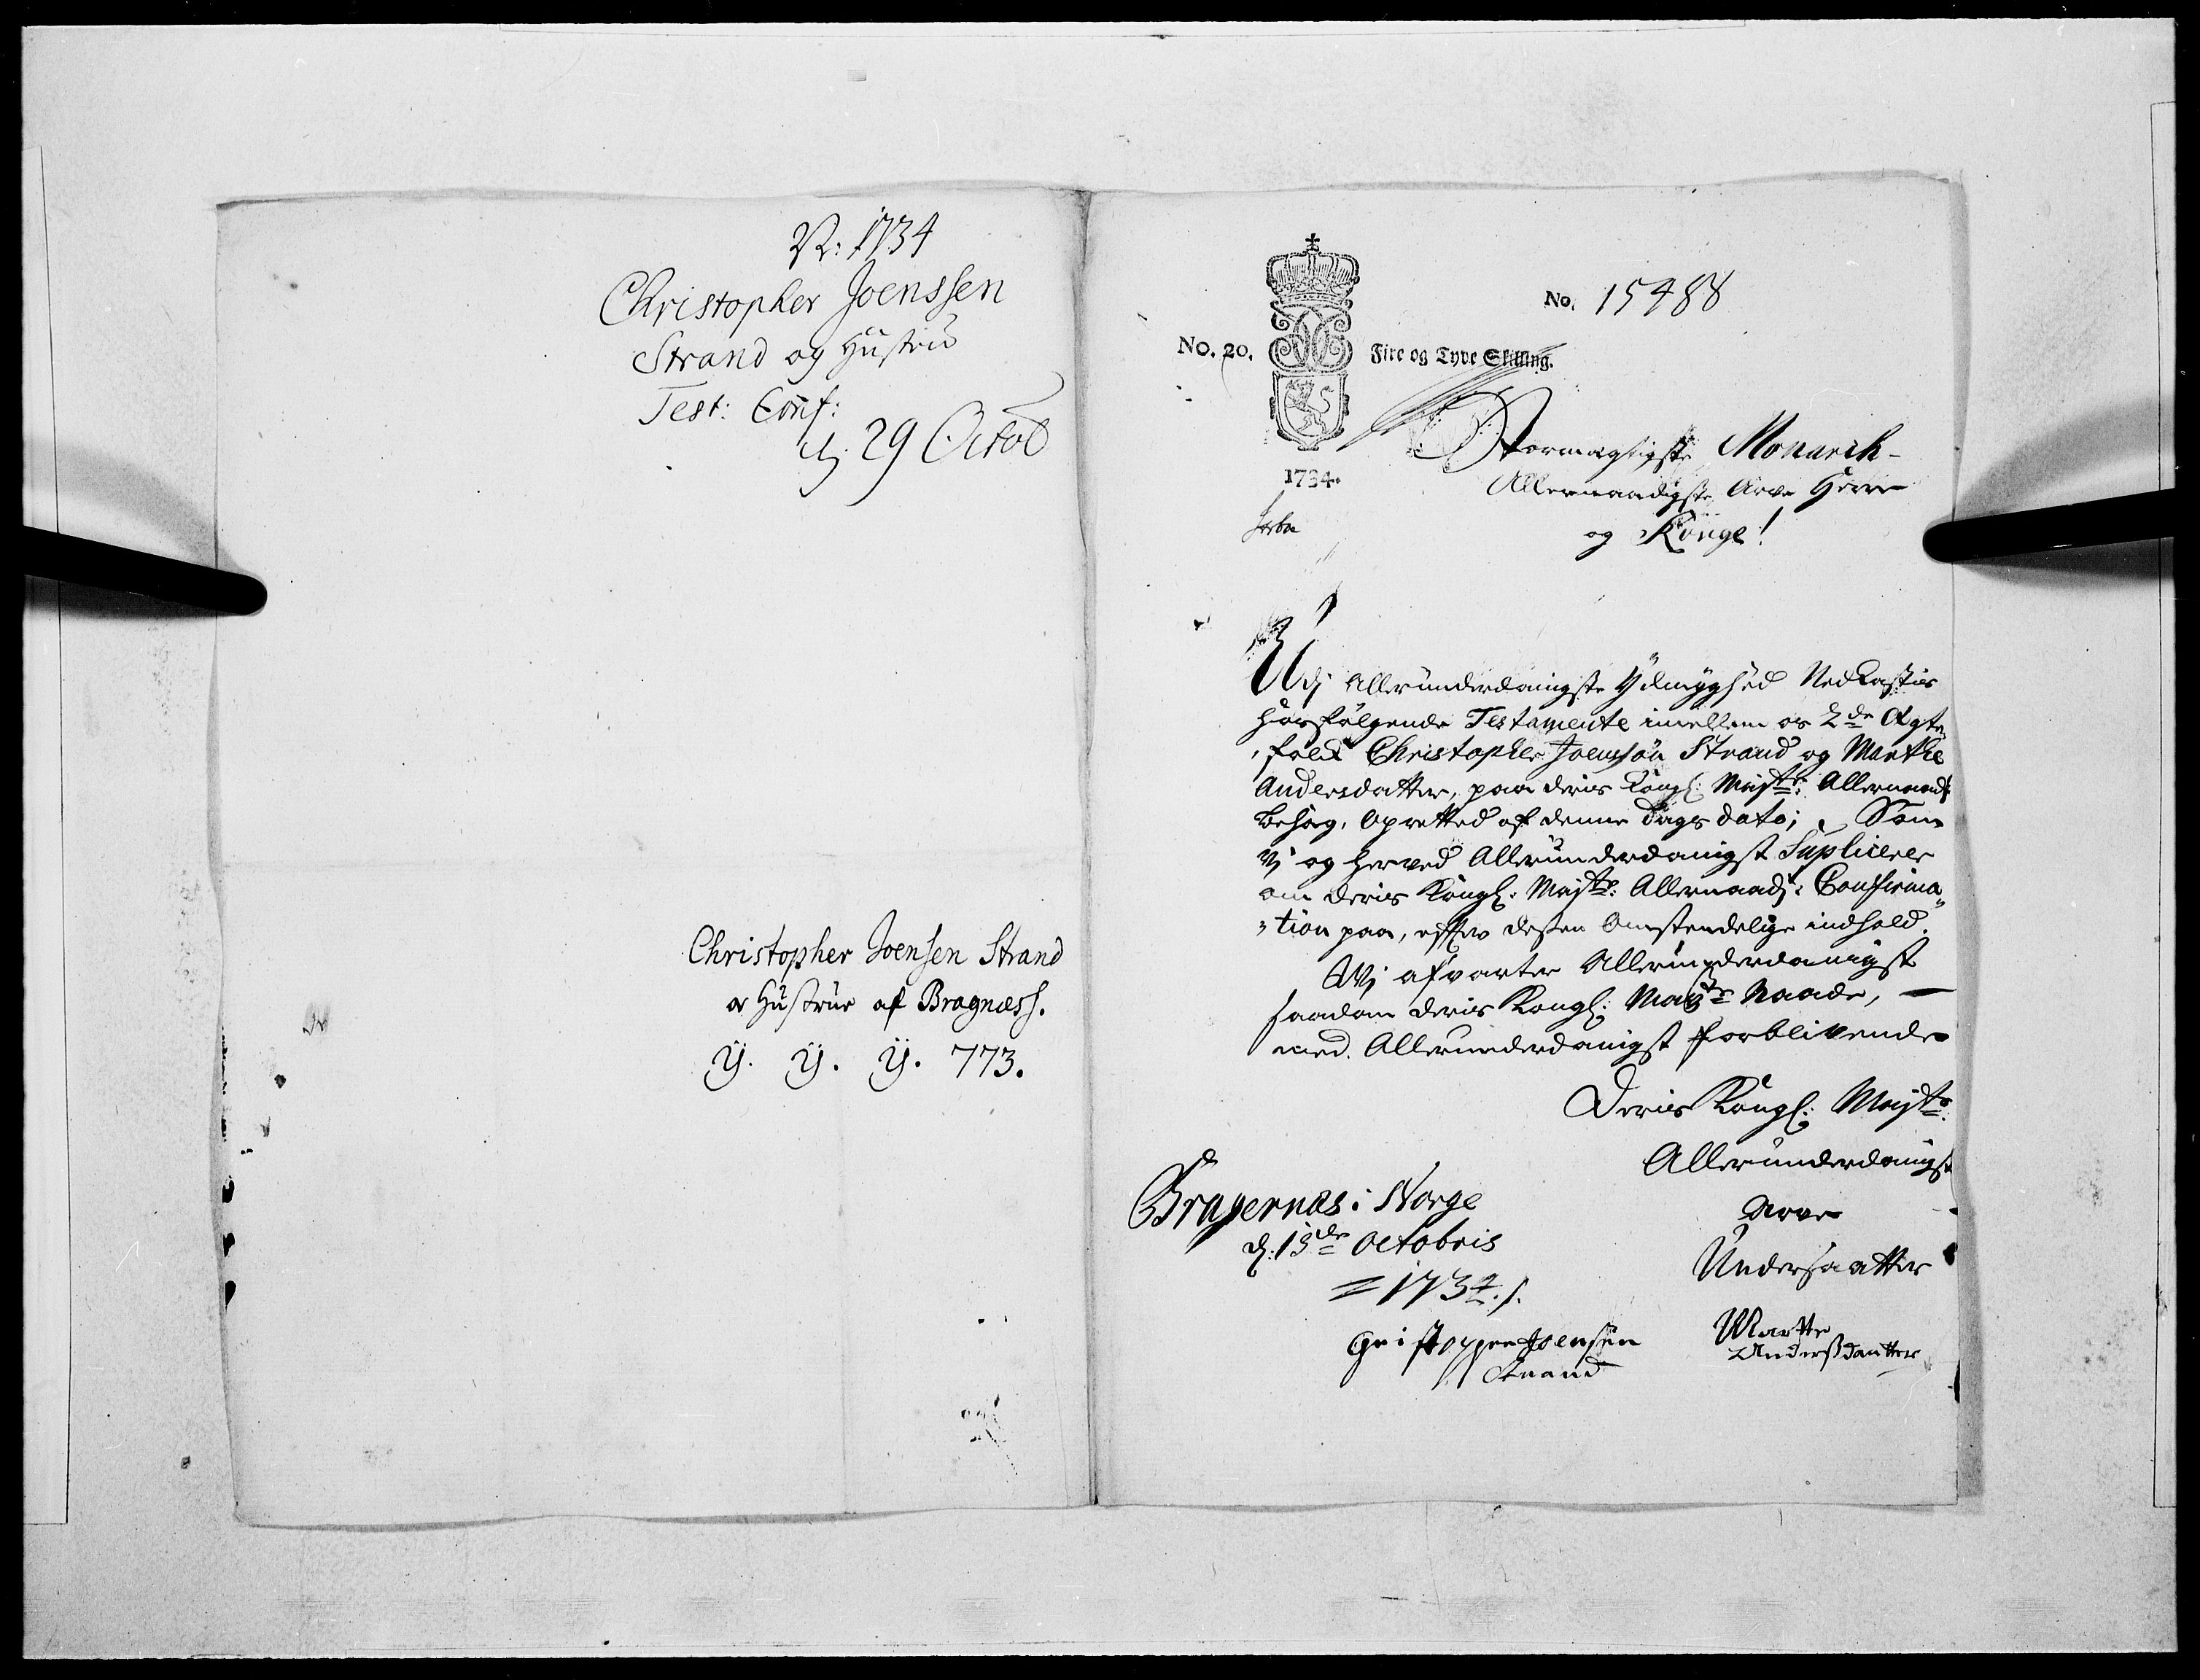 N: 1734
Christopher Joenssen
Strand og Hustru
Test: Conf:
d. 29 Octob
Christopher Joensen Strand
o Hustrue af Bragnæss.
ÿ. ÿ. ÿ. 773.
No. 15488
No. 20.
Fire og Tyve Skilling.
1734.
Stormægtigste Monarch
Allernaadigste Arve Herre
og Konge!
Udj Allerunderdanigste Ydmyghed Nedkastis
hosfølgende Testamente imellem os 2de Ægte
folk Christopher Joensøn Strand og Marthe
Andersdatter, paa deris Kongl: Mayts: Allernaadt
behag, Opretted af denne Dags dato; Som
Vj og herved Allerunderdanigst Suplicere
om deris Kongl: Mayts: Allernaadt: Confirma„
„tion paa, efter dessen Omstendelige indhold.
Wj afvarter Allerunderdanigst
saadan deris Kongl: Mayts Naade,
med Allerunderdanigst forblivende
Deris Kongl: Mayts
Allerunderdanigst
Arve
Undersaatter
Bragernæs i Norge
d: 15de Octobris
= 1734./.
Gristopper Joensen
Strand
Marthe
Anderssdaatter